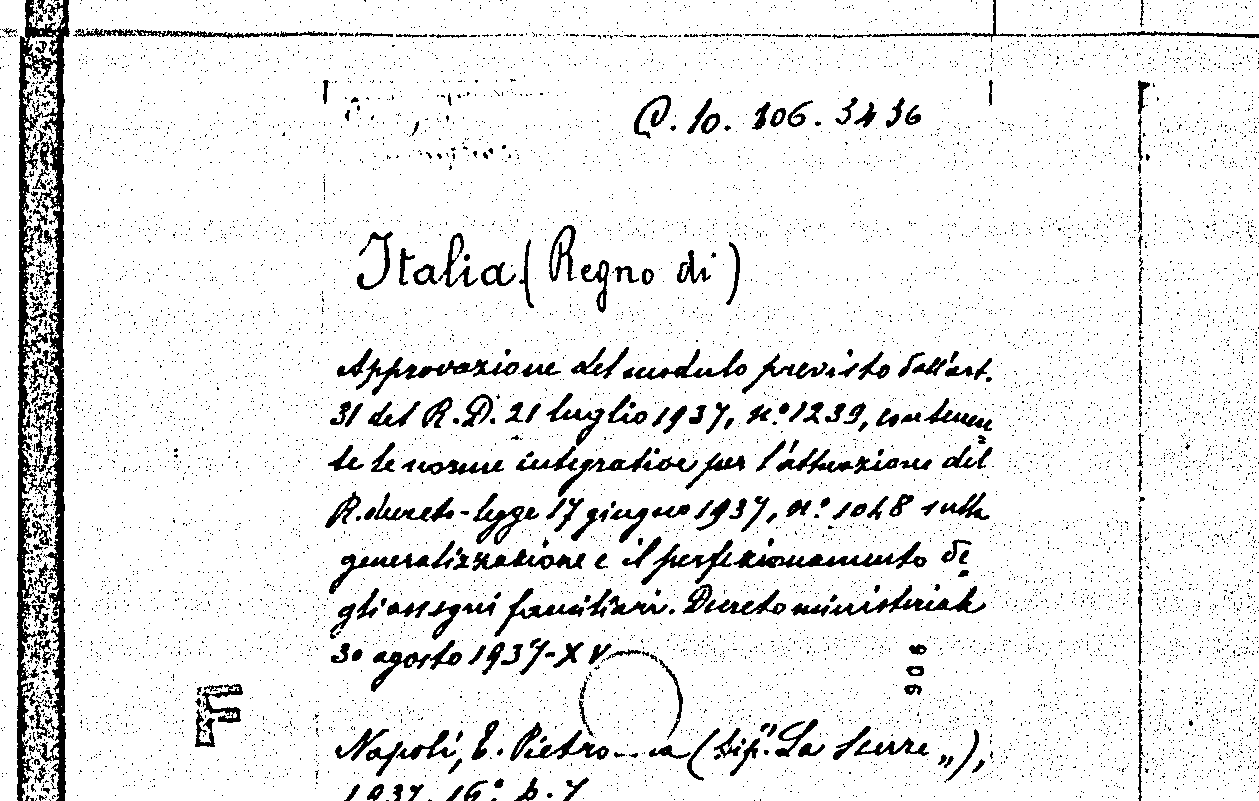 10. 106. 3436
Italia (Regno di)
Approvazione del modulo previsto dall'art.
31 del R.D. 21 luglio 1937, n.º 1239, contenen
te le norme integrative per l'attuazione del
R. decreto-legge 17 giugno 1937, n.º 1048 sulla
generalizzazione e il perfezionamento de
gli assegni familiari. Decreto ministeriale
30 agosto 1937-XV
906
F
Napoli, E. (Tip. "La
1937. 16º p. 7